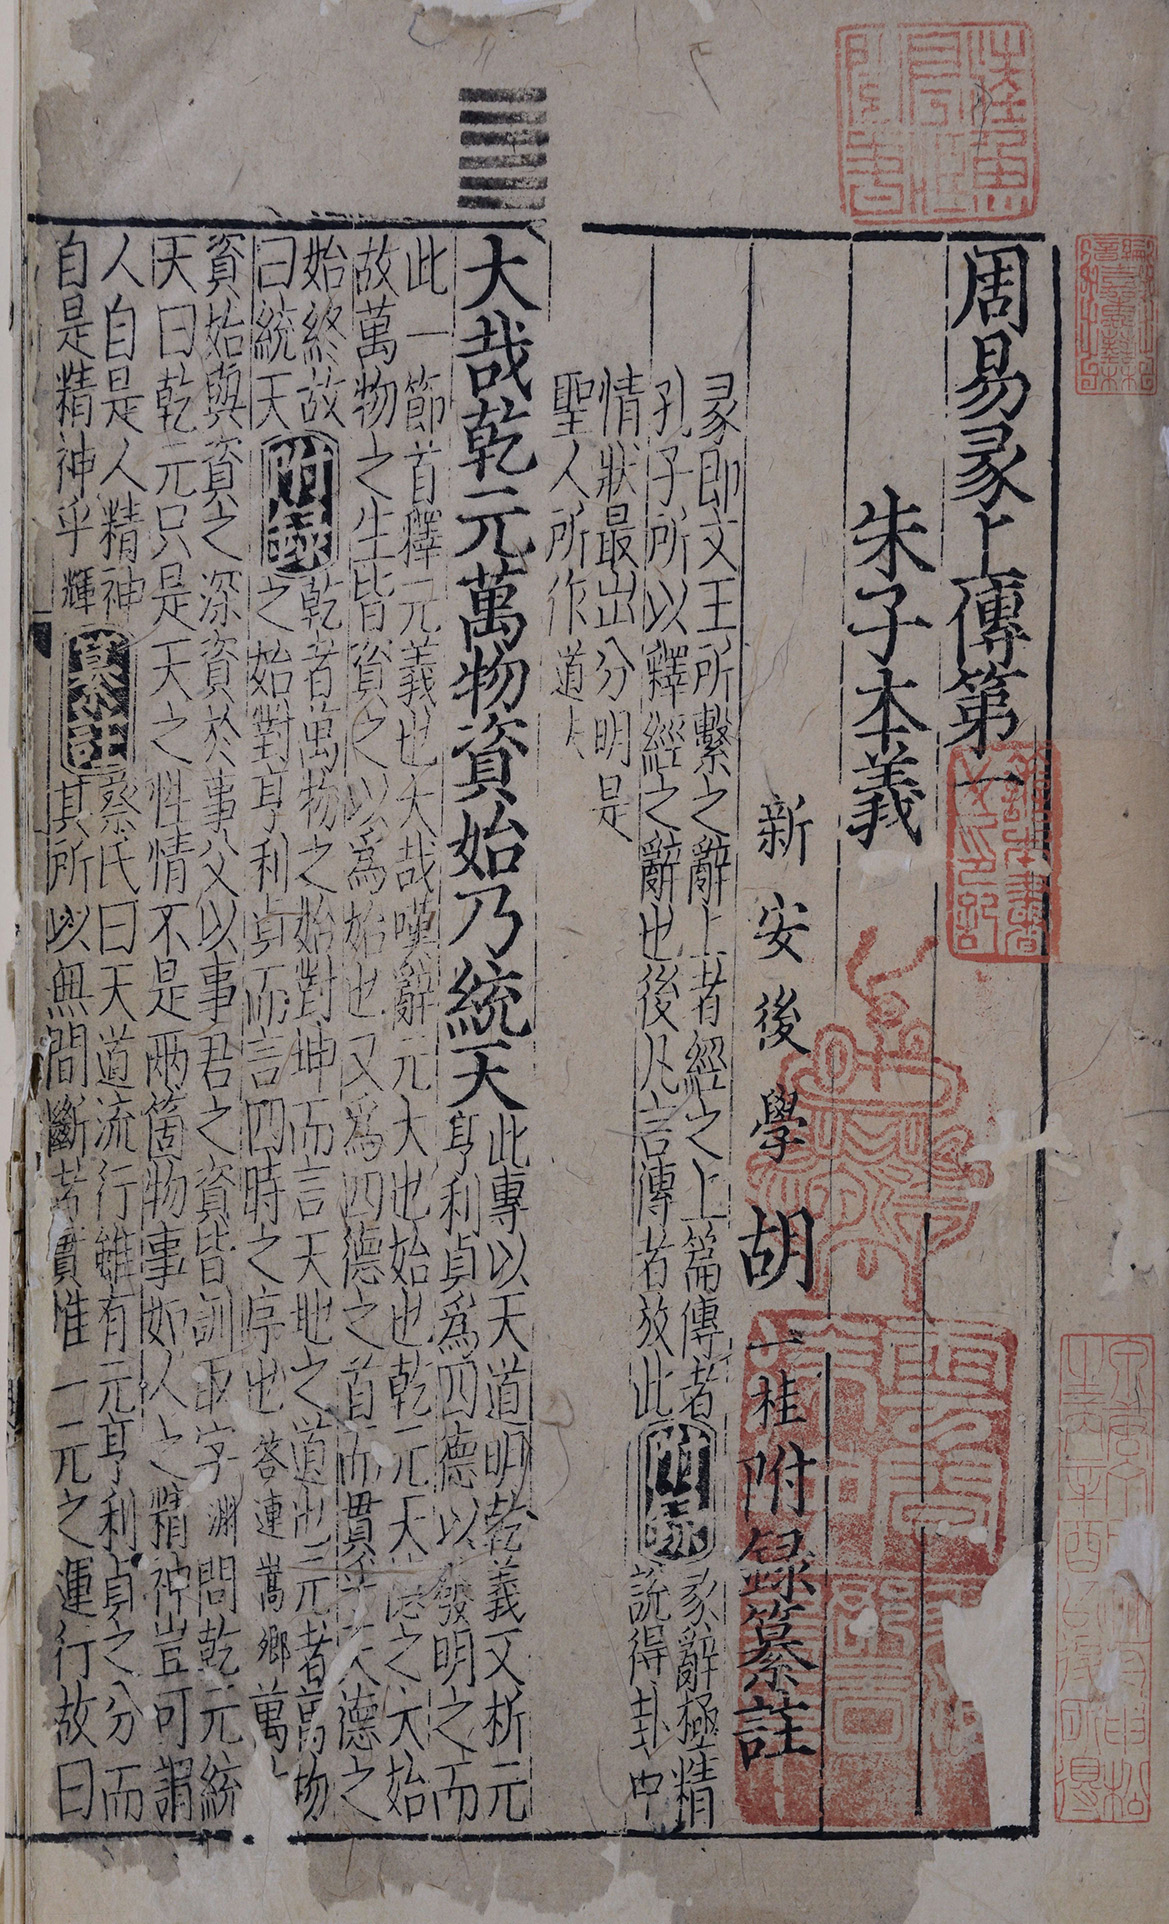 周易彖上傳第一
朱子本義
新安後學胡一桂附録纂註
彖即文王所繫之辭上者經之上篇傳者
孔子所以釋經之辭也後凡言傳者放此
附録
彖辭極精
說得卦中
情狀最出分明是
聖人所作道
大哉乾元萬物資始乃統天
此專以天道明乾義又析元
亨利貞爲四德以發明之而
此一節首釋元義也大哉嘆辭元大也始也乾元天德之大始
故萬物之生皆資之以爲始也又爲四德之首而貫乎天德之
始終故
曰統天
附録
乾者萬物之始對坤而言天地之道也元者萬物
之始對亨利貞而言四時之序也答連嵩鄉萬
資始與資之深資於事父以事君之資皆訓取字淵問乾元統
天曰乾元只是天之性情不是两箇物事如人之精神豈可謂
人自是人精神
自是精神乎輝
纂註
蔡氏曰天道流行雖有元亨利貞之分而
其所以無間斷者實惟一元之運行故曰